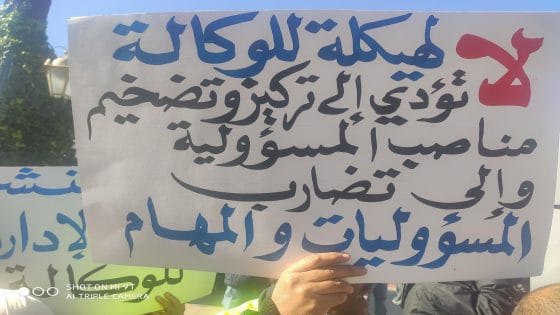 لا لهيكلة للوكالة
تؤدي إلى تركيز وتضخيم
مناصب المسؤولية
وإلى تضارب
المسؤوليات والمهام
للوكالة
SHOT ON MI 9T
AI TRIPLE CAMERA